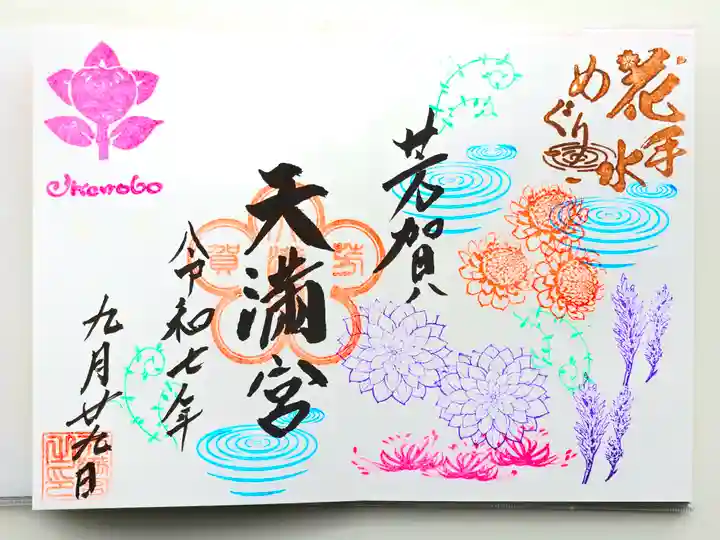 花手水
めぐり
芳賀
天満宮
令和七年
九月廿九日
Ikenobo